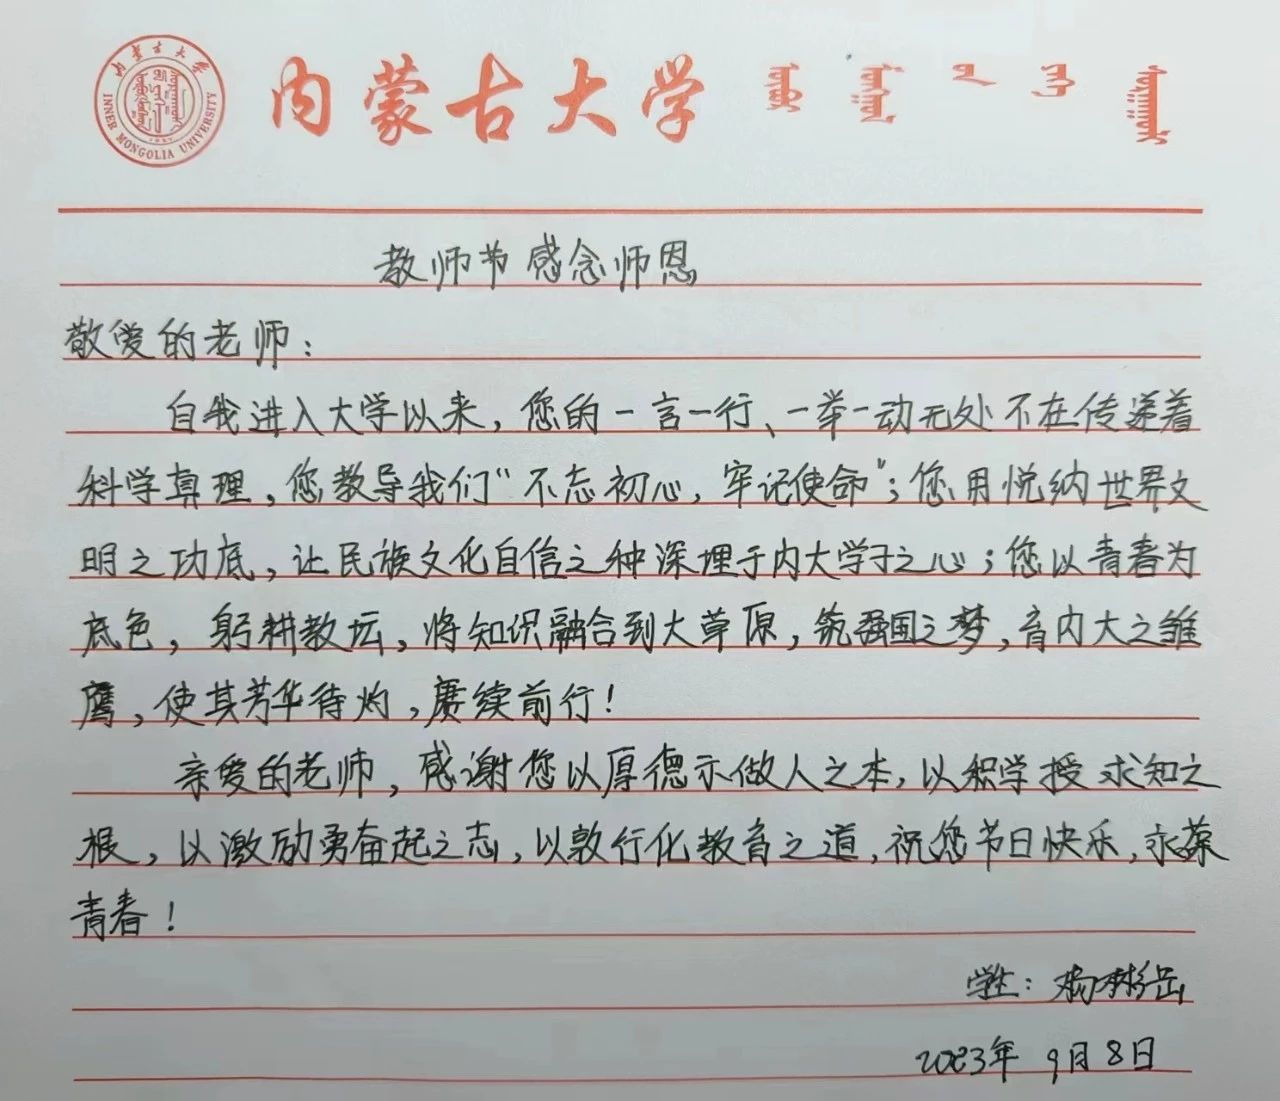 内蒙古大学
INNER MONGOLIA UNIVERSITY
内蒙古大学
教师节感念师恩
敬爱的老师：
自我进入大学以来，您的一言一行、一举一动无处不在传递着
科学真理，您教导我们“不忘初心，牢记使命”；您用悦纳世界文
明之功底，让民族文化自信之种深埋于内大学子之心；您以青春为
底色，躬耕教坛，将知识融合到大草原，筑强国之梦，育内大之雏
鹰，使其芳华待灼，赓续前行！
亲爱的老师，感谢您以厚德示做人之本，以积学授求知之
根，以激励勇奋起之志，以敦行化教育之道，祝您节日快乐，永葆
青春！
学生：杨彬岳
2023年 9月8日